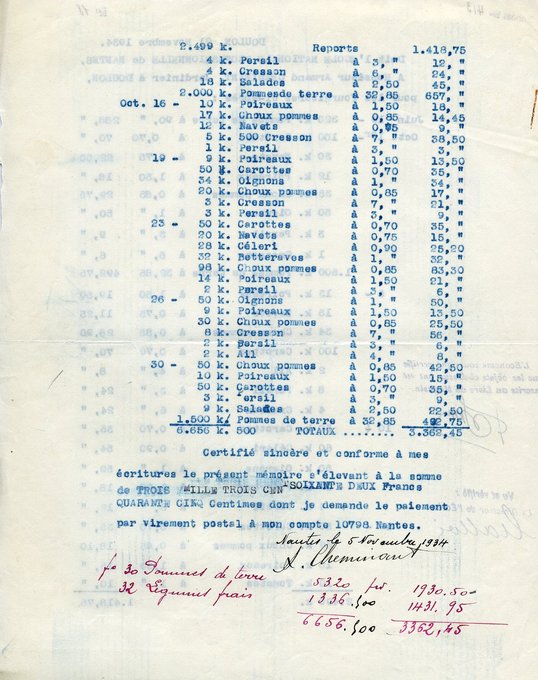 2.499 k. Reports 1.418,75
4 k. Persil à 3, " 12, "
4 k. Cresson à 6, " 24, "
18 k. Salades à 2,50 45, "
2.000 k. Pommes de terre à 32,85 657, "
Oct. 16 - 10 k. Poireaux à 1,50 18, "
17 k. Choux pommes à 0,85 14,45
12 k. Navets à 0,75 9, "
5 k. 500 Cresson à 7, " 38,50
1 k. Persil à 3, " 3, "
19 - 9 k. Poireaux à 1,50 13,50
50 k. Carottes à 0,70 35, "
34 k. Oignons à 1, " 34, "
20 k. Choux pommes à 0,85 17, "
3 k. Cresson à 7, " 21, "
3 k. Persil à 3, " 9, "
23 - 50 k. Carottes à 0,70 35, "
20 k. Navets à 0,75 15, "
28 k. Céleri à 0,90 25,20
32 k. Betteraves à 1, " 32, "
98 k. Choux pommes à 0,85 83,30
14 k. Poireaux à 1,50 21, "
2 k. Persil à 3, " 6, "
26 - 50 k. Oignons à 1, " 50, "
9 k. Poireaux à 1,50 13,50
30 k. Choux pommes à 0,85 25,50
8 k. Cresson à 7, " 56, "
2 k. Persil à 3, " 6, "
2 k. Ail à 4, " 8, "
30 - 50 k. Choux pommes à 0,85 42,50
10 k. Poireaux à 1,50 15, "
50 k. Carottes à 0,70 35, "
3 k. Persil à 3, " 9, "
9 k. Salades à 2,50 22,50
1.500 k. Pommes de terre à 32,85 492,75
6.656 k. 500 TOTAUX ....... 3.362,45
Certifié sincère et conforme à mes
écritures le présent mémoire s'élevant à la somme
de TROIS MILLE TROIS CENT SOIXANTE DEUX Francs
QUARANTE CINQ Centimes dont je demande le paiement
par virement postal à mon compte 10798 Nantes.
Nantes le 5 Novembre 1934
L. Cheminant
fo 30 Pommes de terre 5320 pr. 1930.50
32 Légumes frais 1336.500 1431.95
6656.500 3362,45